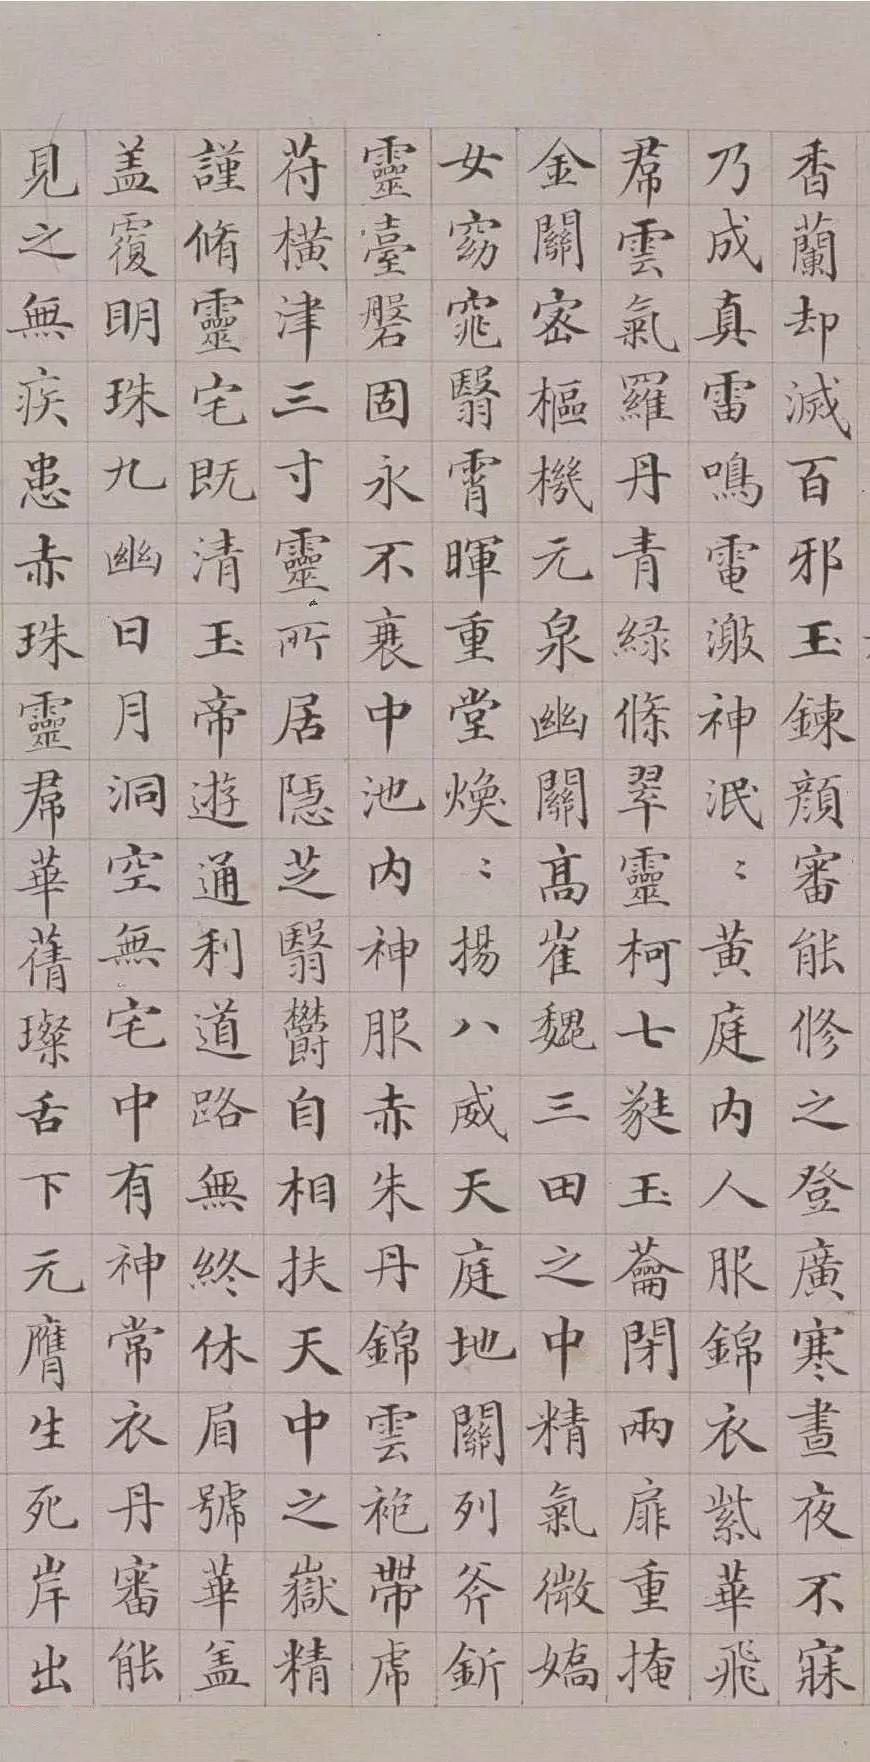 香蘭却滅百邪玉鍊顔審能修之登廣寒晝夜不寐
乃成真雷鳴電激神泯〻黄庭内人服錦衣紫華飛
帬雲氣羅丹青緑條翠靈柯七蕤玉蘥閉兩扉重掩
金關密樞機元泉幽關髙崔巍三田之中精氣微嬌
女窈窕翳霄暉重堂焕〻揚八威天庭地關列斧釿
靈臺磐固永不衰中池内神服赤朱丹錦雲袍帶虎
苻橫津三寸靈所居隠芝翳鬱自相扶天中之嶽精
謹脩靈宅既清玉帝遊通利道路無終休眉號華盖
盖覆明珠九幽日月洞空無宅中有神常衣丹審能
見之無疾患赤珠靈帬華蒨璨舌下元膺生死岸出